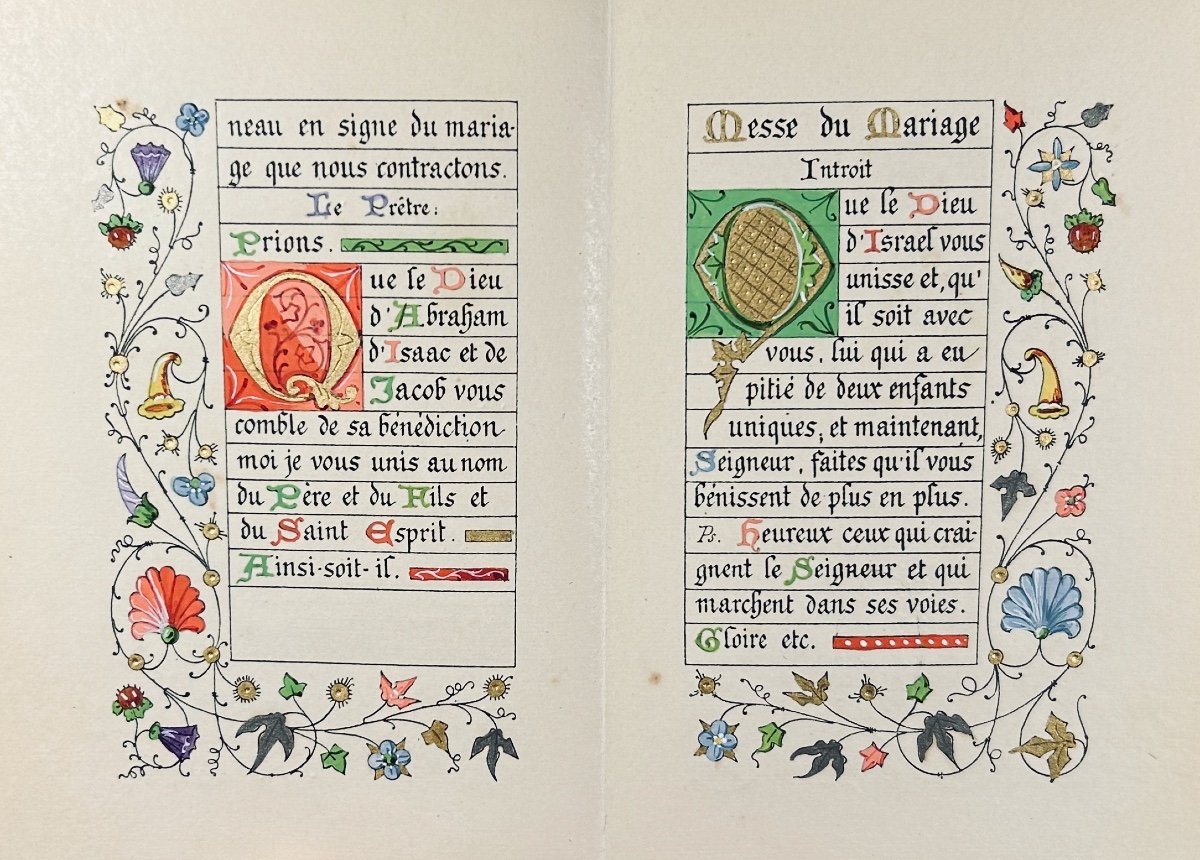 neau en signe du maria-
ge que nous contractons.
Le Prêtre:
Prions.
Que le Dieu
d'Abraham
d'Isaac et de
Jacob vous
comble de sa bénédiction
moi je vous unis au nom
du Père et du Fils et
du Saint Esprit.
Ainsi-soit-il.
Messe du Mariage
Introit
Que le Dieu
d'Israel vous
unisse et, qu'
il soit avec
vous, lui qui a eu
pitié de deux enfants
uniques, et maintenant,
Seigneur, faites qu'il vous
bénissent de plus en plus.
Ps. Heureux ceux qui crai-
gnent le Seigneur et qui
marchent dans ses voies.
Gloire etc.